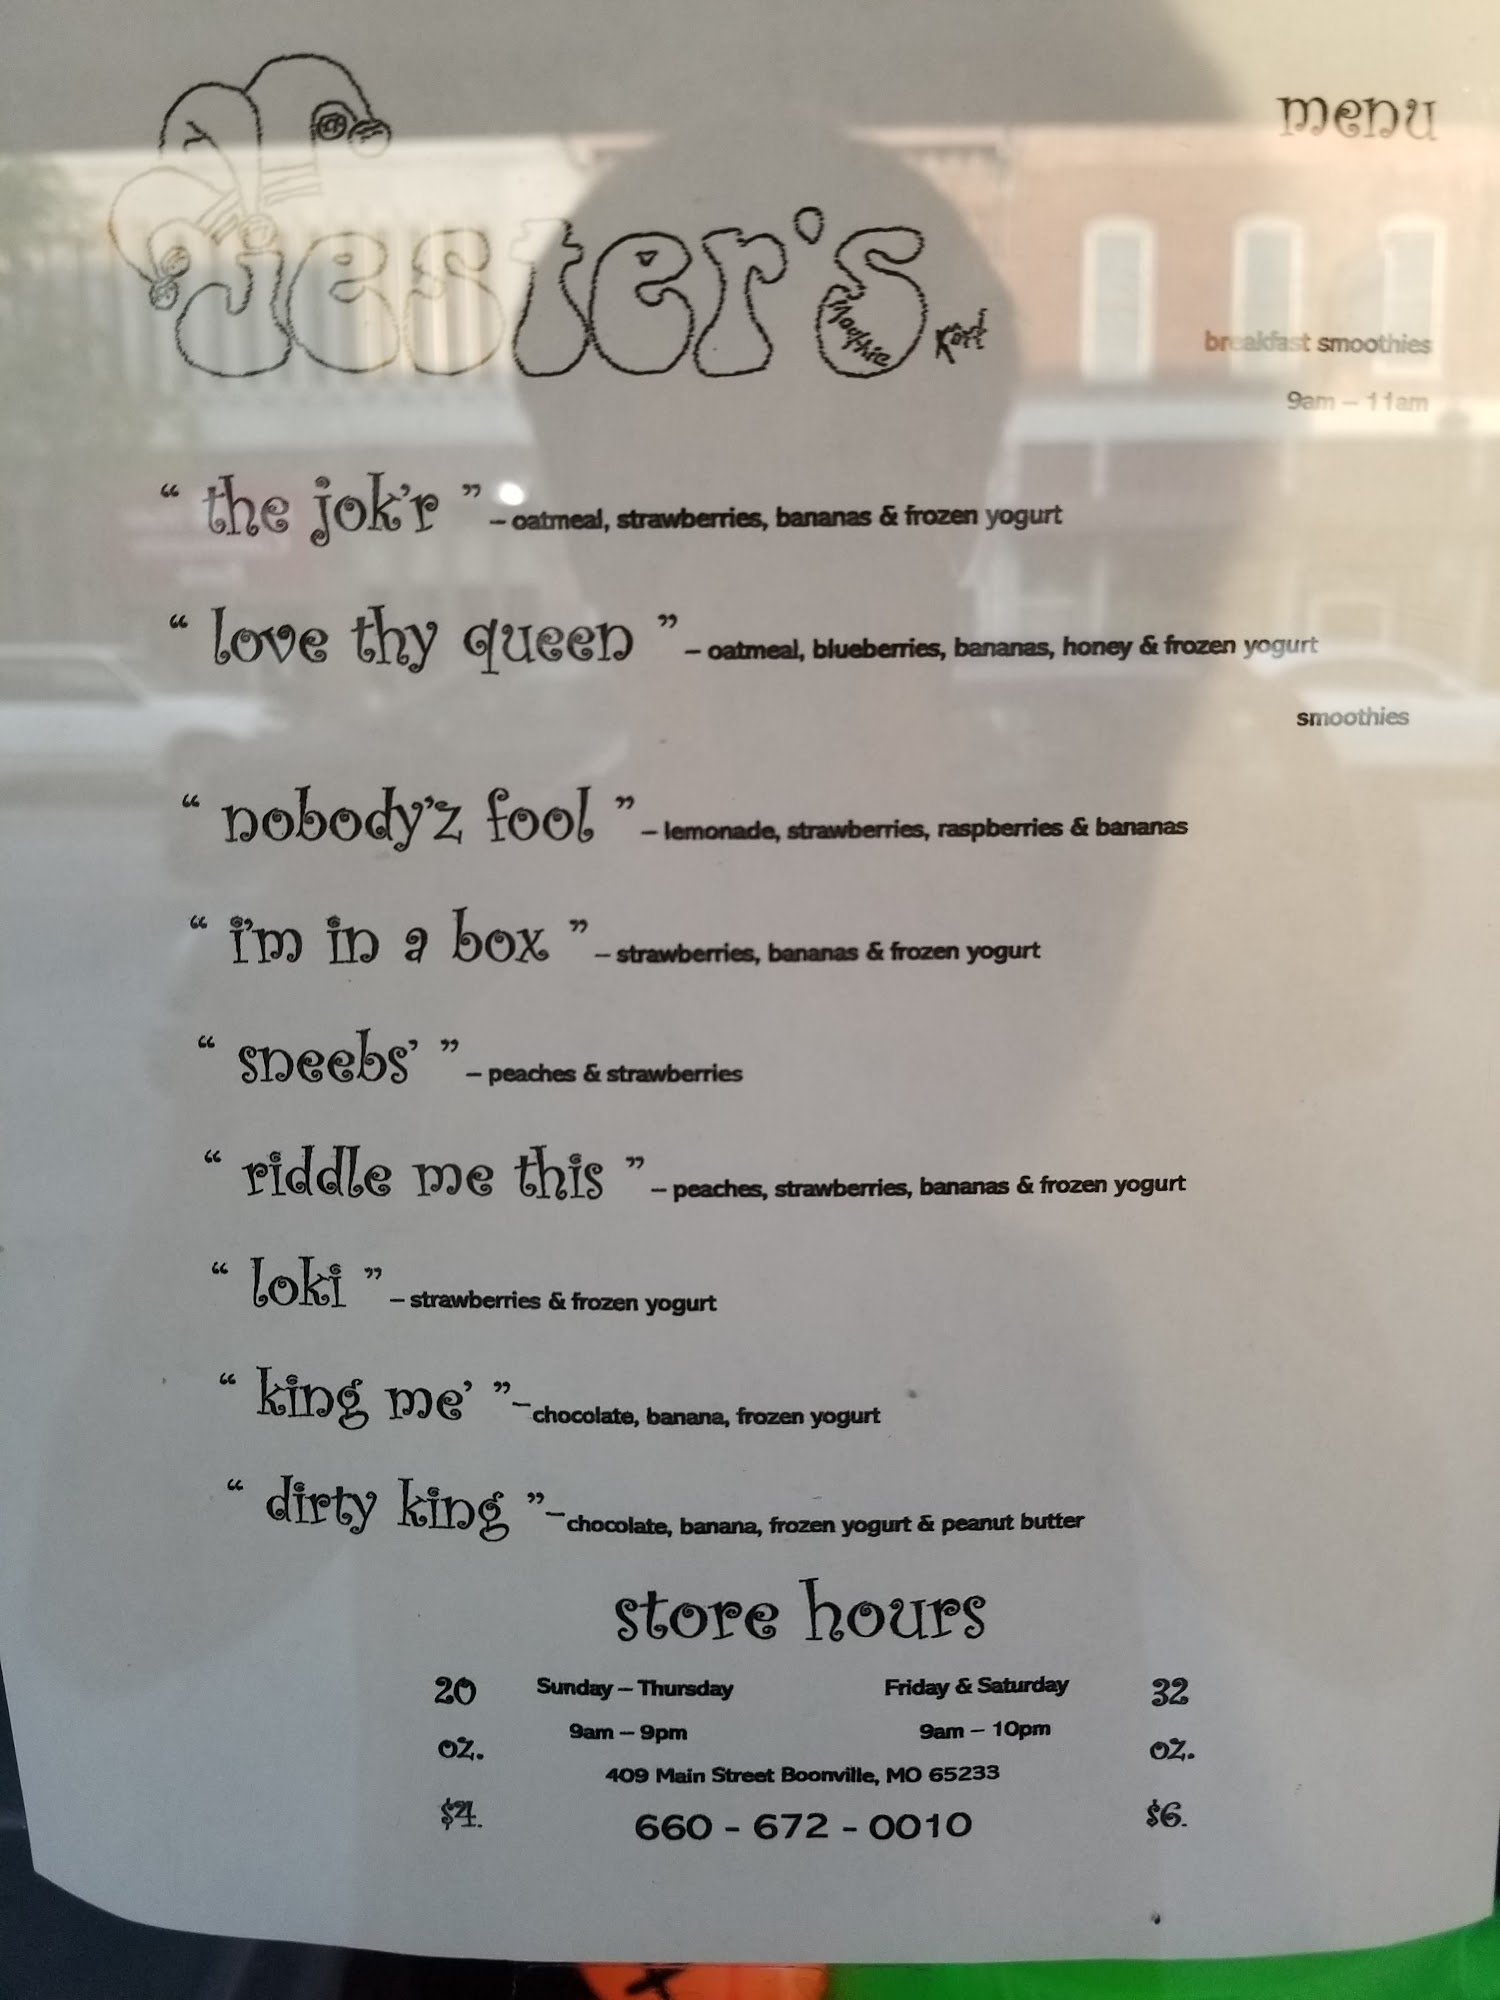 menu
Jester's
Smoothie Kort
breakfast smoothies
9am – 11am
“ the jok'r ” – oatmeal, strawberries, bananas & frozen yogurt
“ love thy queen ” – oatmeal, blueberries, bananas, honey & frozen yogurt
smoothies
“ nobody'z fool ” – lemonade, strawberries, raspberries & bananas
“ i'm in a box ” – strawberries, bananas & frozen yogurt
“ sneebs' ” – peaches & strawberries
“ riddle me this ” – peaches, strawberries, bananas & frozen yogurt
“ loki ” – strawberries & frozen yogurt
“ king me' ” – chocolate, banana, frozen yogurt
“ dirty king ” – chocolate, banana, frozen yogurt & peanut butter
store hours
20 Sunday – Thursday Friday & Saturday 32
9am – 9pm 9am – 10pm
oz. oz.
409 Main Street Boonville, MO 65233
$4. 660 - 672 - 0010 $6.